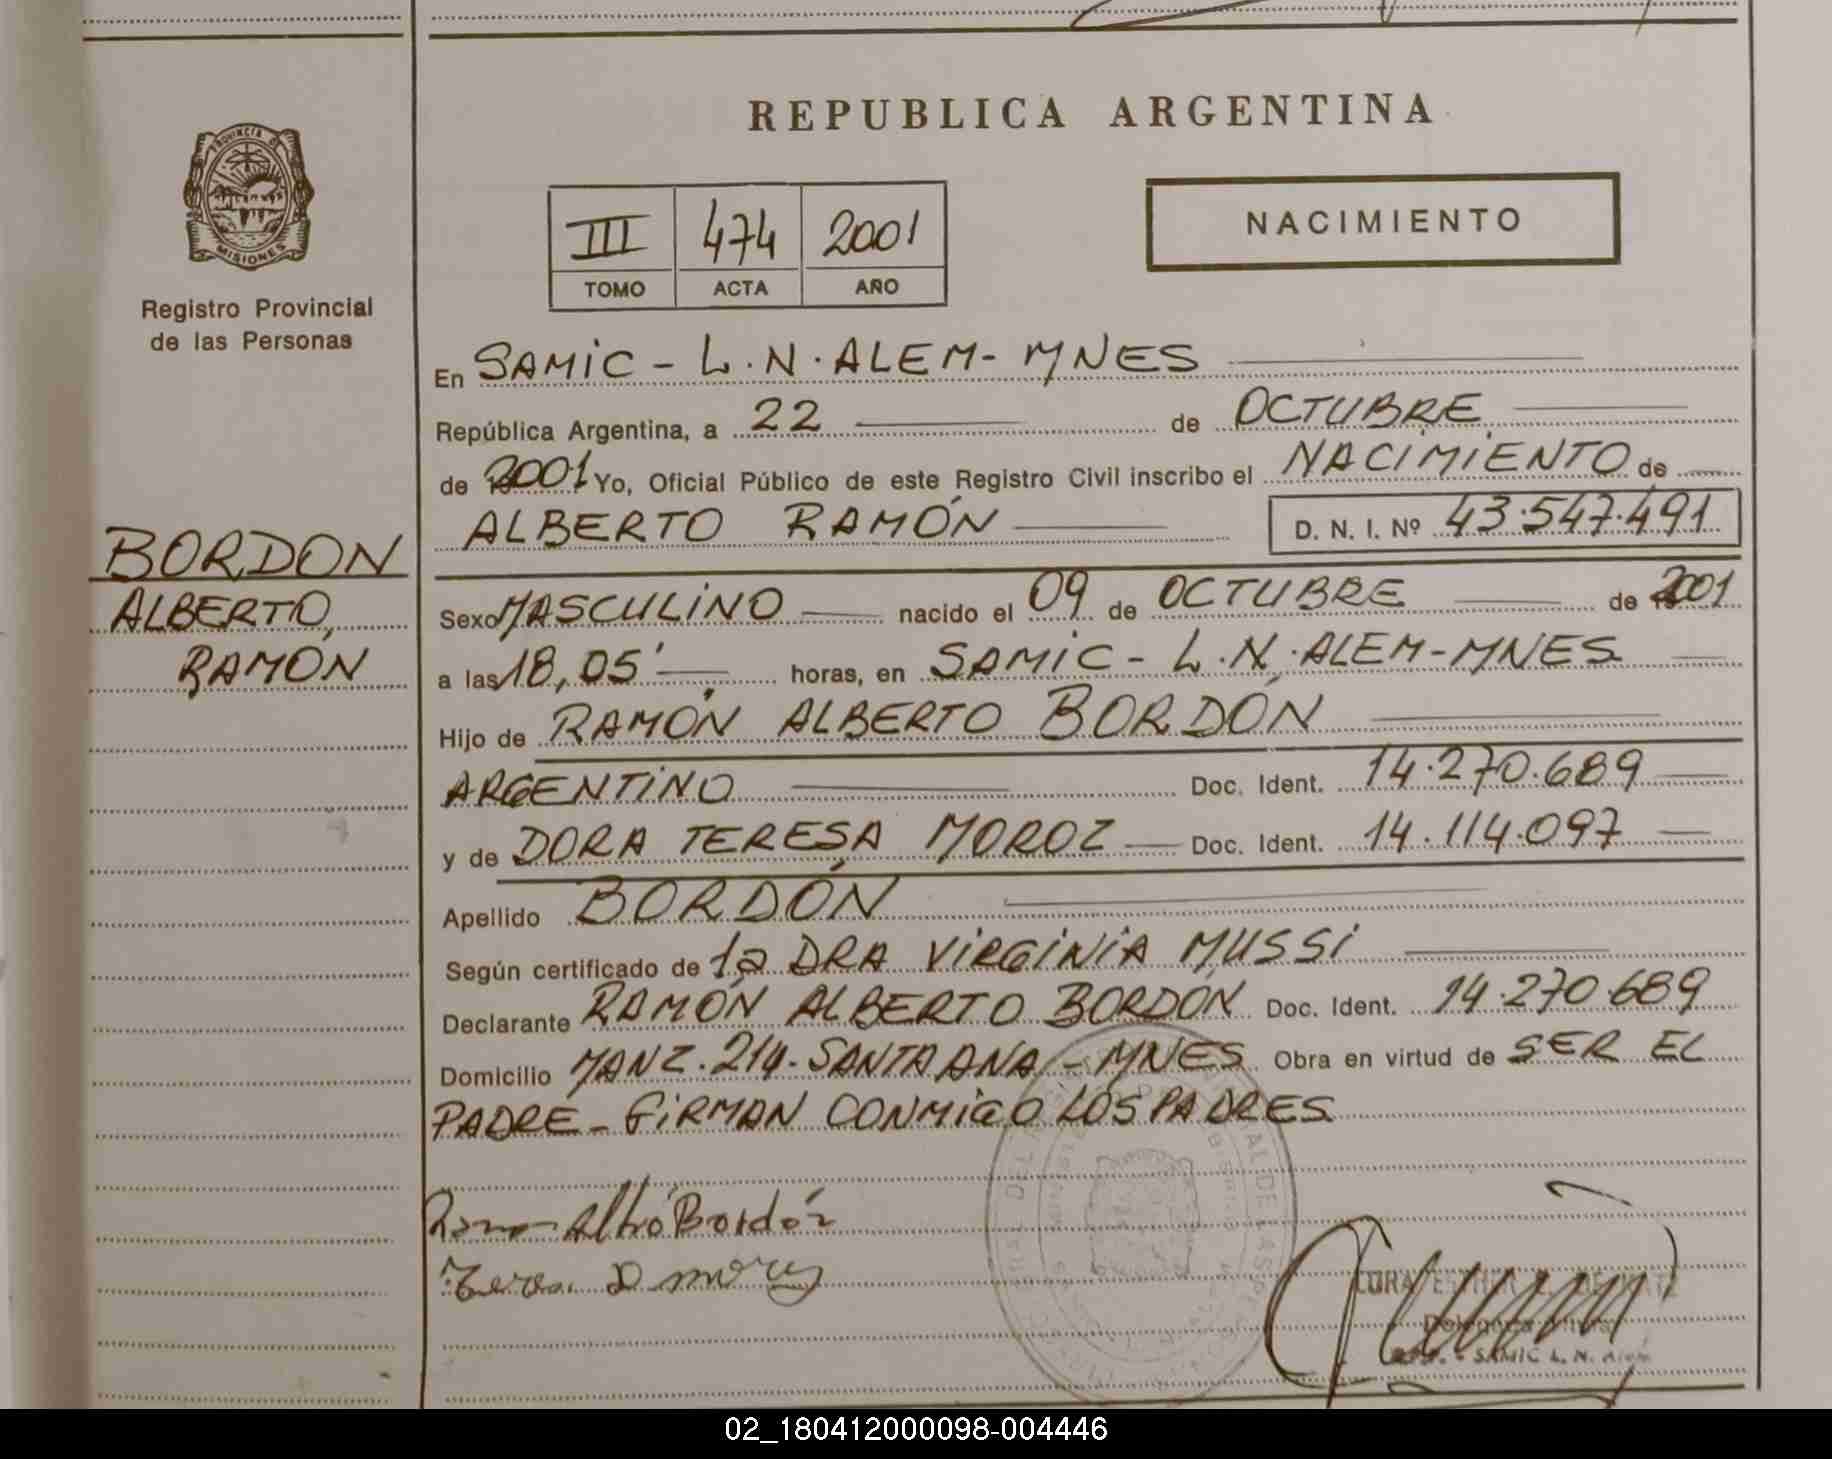 REPUBLICA ARGENTINA
PROVINCIA DE
MISIONES
Registro Provincial
de las Personas
III 474 2001
TOMO ACTA AÑO
NACIMIENTO
En SAMIC - L.N.ALEM- MNES
República Argentina, a 22 de OCTUBRE
de 2001 Yo, Oficial Público de este Registro Civil inscribo el NACIMIENTO de
ALBERTO RAMÓN D. N. I. Nº 43.547.491
BORDON
ALBERTO,
RAMÓN
Sexo MASCULINO nacido el 09 de OCTUBRE de 2001
a las 18,05' horas, en SAMIC - L.N.ALEM-MNES
Hijo de RAMÓN ALBERTO BORDÓN
ARGENTINO Doc. Ident. 14.270.689
y de DORA TERESA MOROZ Doc. Ident. 14.114.097
Apellido BORDÓN
Según certificado de la DRA VIRGINIA MUSSI
Declarante RAMÓN ALBERTO BORDÓN Doc. Ident. 14.270.689
Domicilio MANZ.214-SANTA ANA - MNES Obra en virtud de SER EL
PADRE - FIRMAN CONMIGO LOS PADRES
Ramon Albto Bordón
Teresa D
SAMIC L. N. Alem
02_180412000098-004446